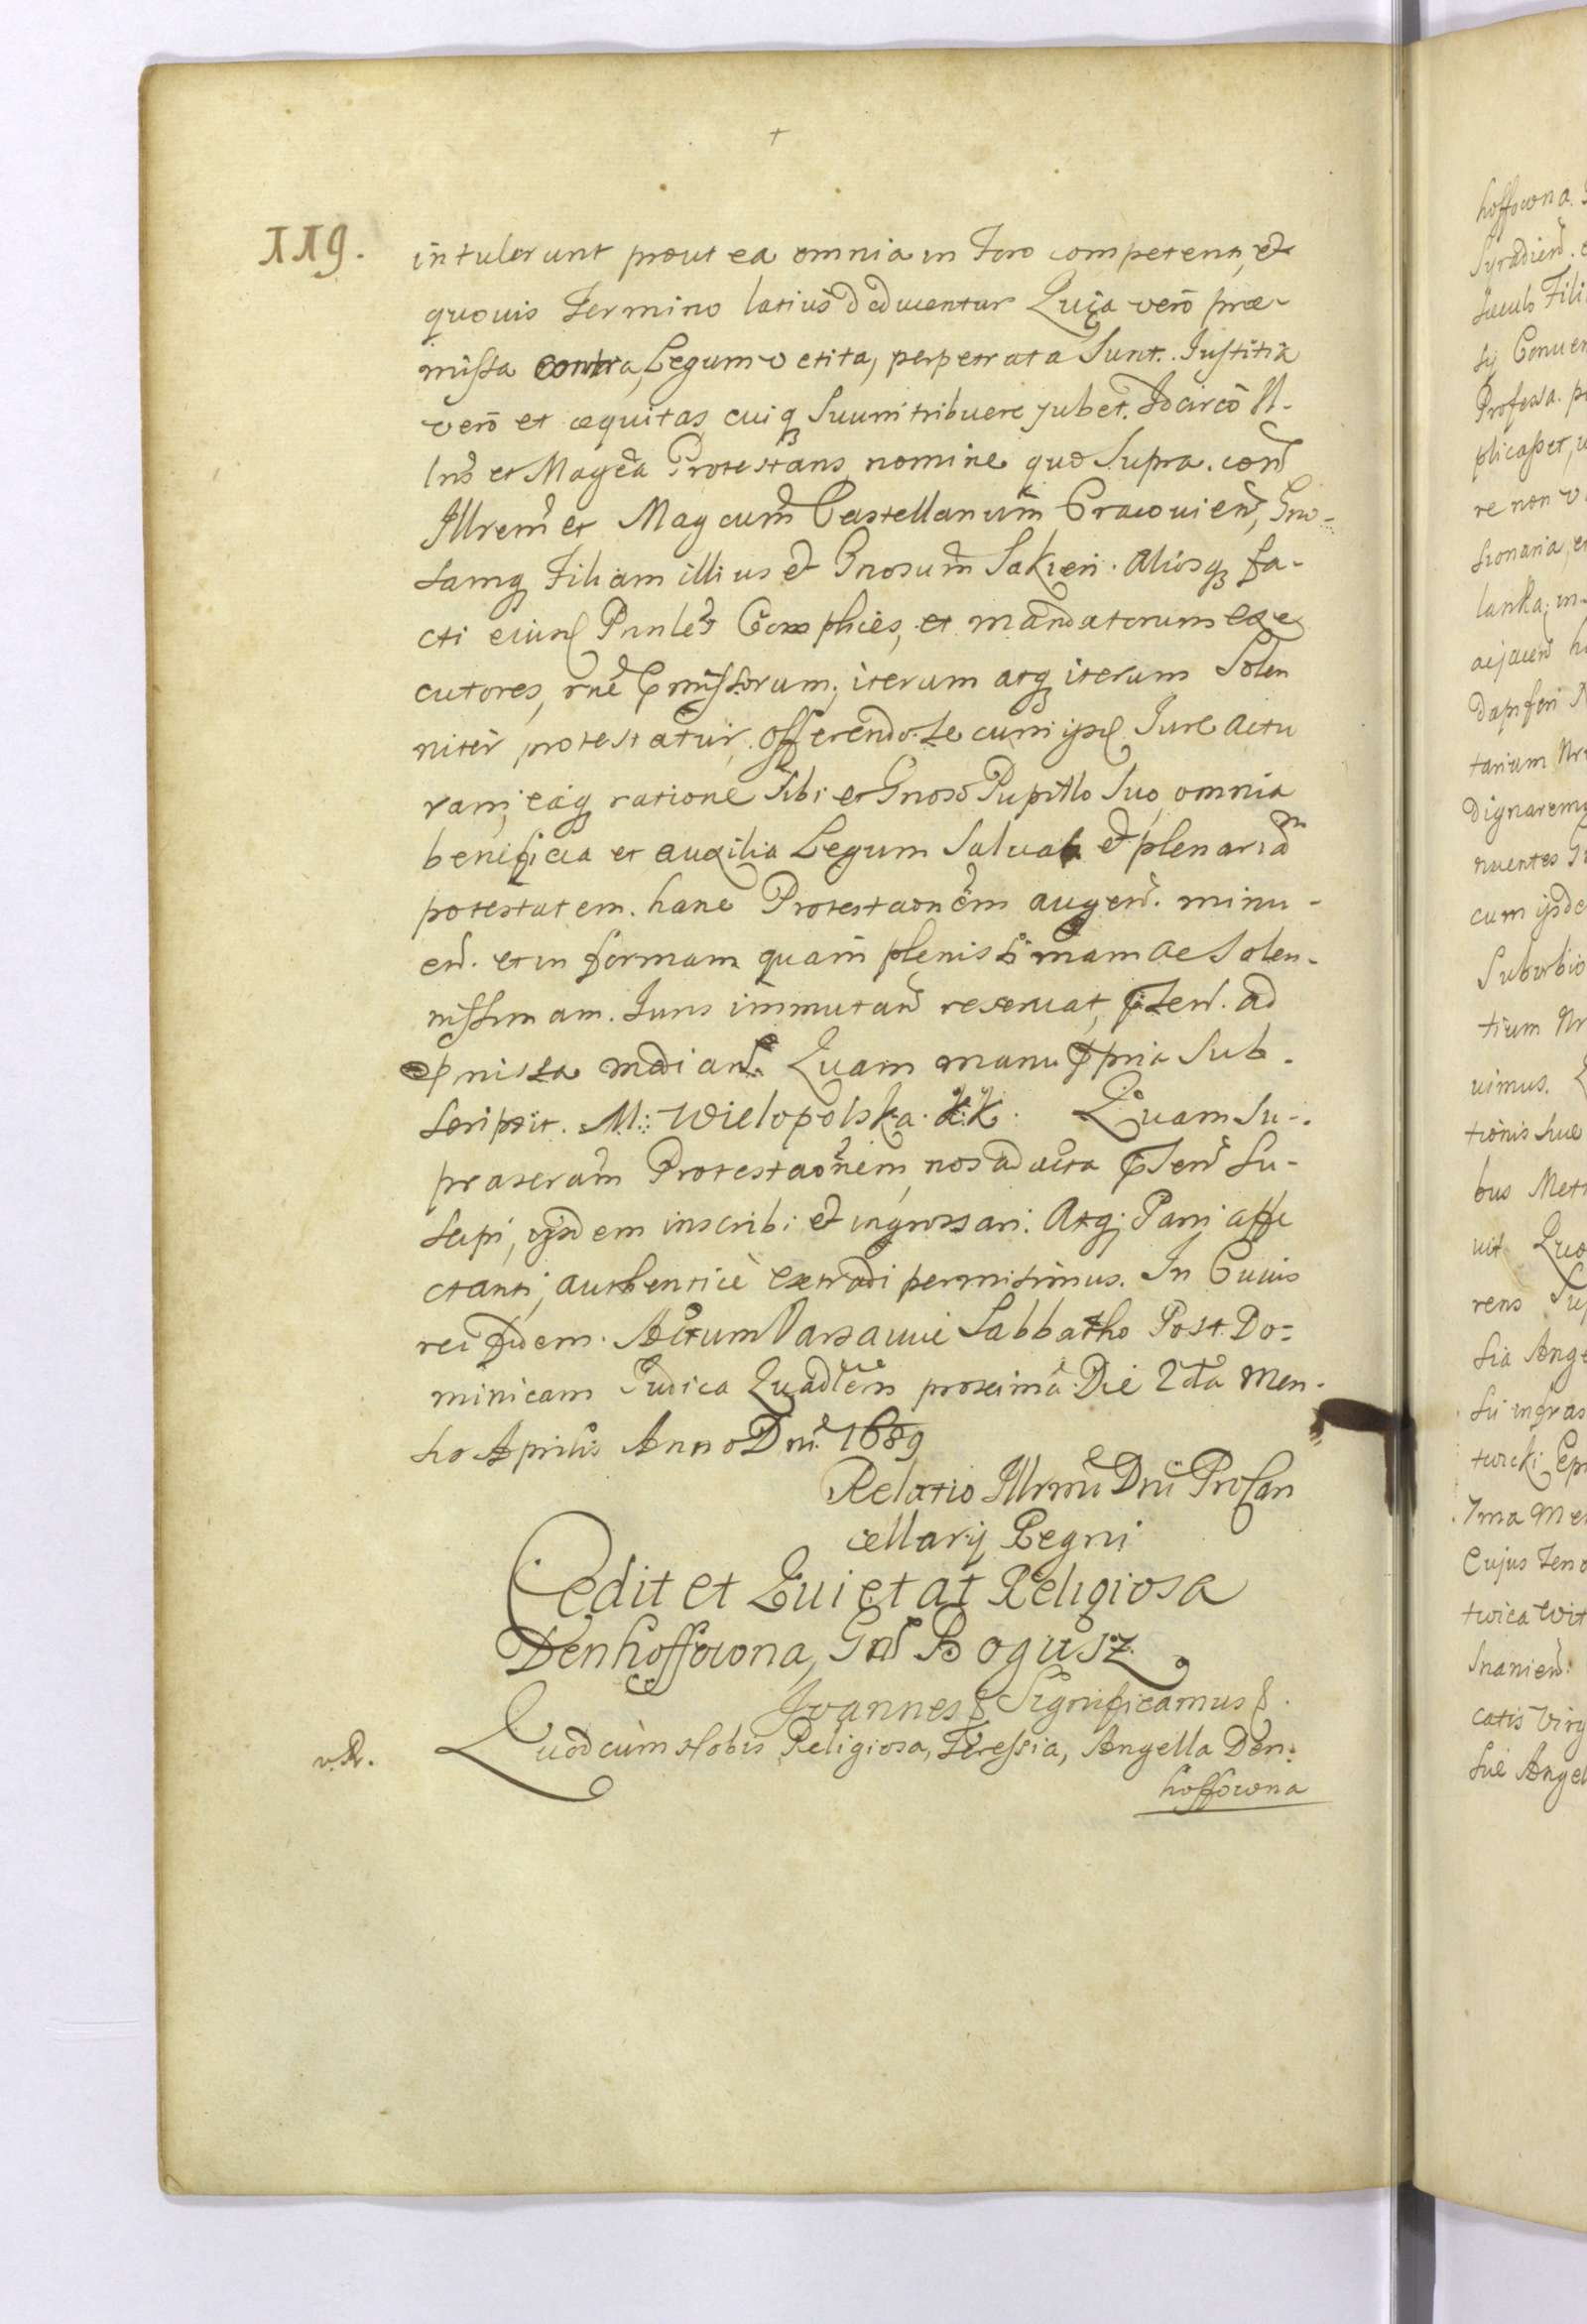 119.
intulerunt prout ea omnia in Foro competenti, et
quouis Termino latius deducentur Quia vero prae-
missa contra Legum vetita, perpetrata sunt. Justitia
vero et aequitas cuiq suum tribuere jubet. Idcirco Il-
lris et Magca Protestans nomine quo supra. con
Illrem et Magcum Castellanum Cracouien, Gno-
samq Filiam illius et Gnosum Sakien. Aliosq fa-
cti eius Pnnles Complices, et mandatorum exe
cutores, rne pmissorum, iterum atq iterum Solen
niter protestatur, offerendo se cum ijsd Jure actu
ram, eaq ratione sibi et Gnoso Pupillo suo omnia
beneficia et auxilia Legum Salua et plenariam
potestatem. hanc Protestaonem augen. minu-
en. et in formam quam plenissimam ac Solen-
nissimam. Juris immutan reseruat, pnten. ad
pmissa median. Quam manu ppria sub-
scripsit. M: Wielopolska K:K. Quam Su-
prascram Protestaonem, nos ad acta pnten Su-
scipi, ijsdem inscribi et ingrossari. Atq Parti affe
ctanti, authentice extradi permisimus. In Cuius
rei fidem. Actum Varsauiae Sabbatho Post Do-
minicam Judica Quadlem proxima Die 2da Men-
sis Aprilis Anno Dni. 1689
Relatio Illrmi Dni ProCan
cellarij Regni
Cedit et Quietat Religiosa
Denhoffowna, Gnd Bogusz
Joannes & Significamus &.
v.R. Quod cum Nobis Religiosa, Teressia, Angella Den:
hoffowna
hoffowna.
Syradien.
Filii
Conuen
Professa.
plicasset,
re non
lanka, in
dapiferi
tarium
Dignaremq
nuentes
cum ijsde
Suburbio
uimus.
tionis sue
bus Metr
uit Quo
rens
sia Ange
su infras
twicki Ep
7ma Me
Cujus
twica Wit
Snanien.
catis Virg
sie Angel